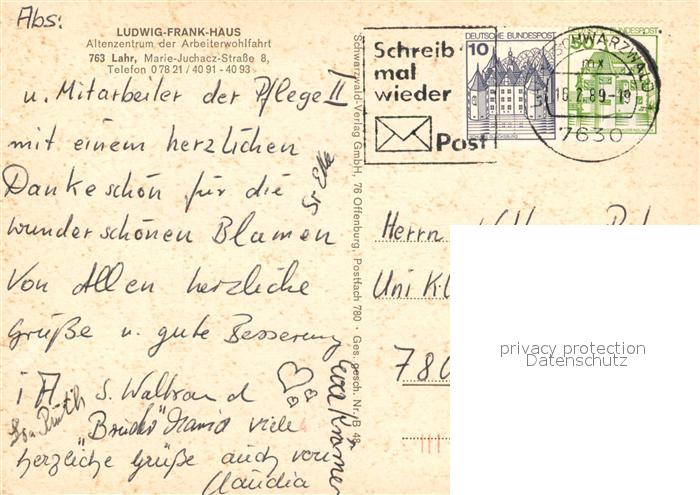 Abs:
LUDWIG-FRANK-HAUS
Altenzentrum der Arbeiterwohlfahrt
763 Lahr, Marie-Juchacz-Straße 8,
Telefon 0 78 21 / 40 91 - 40 93
u. Mitarbeiter der Pflege II
mit einem herzlichen
Dankeschön für die
wunderschönen Blumen
Von Allen herzliche
Grüße u. gute Besserung
i A. S. Waltraud
"Bruder" viele
herzliche Grüße auch von
Claudia
Eva Krämer
Schwarzwald-Verlag GmbH, 76 Offenburg, Postfach 780 · Ges. gesch. Nr. B 48
Schreib
mal
wieder
Post
DEUTSCHE BUNDESPOST
10
50
SCHWARZWALD
mx
16.2.89-19
7630
Herrn
Uni Kl
780
privacy protection
Datenschutz